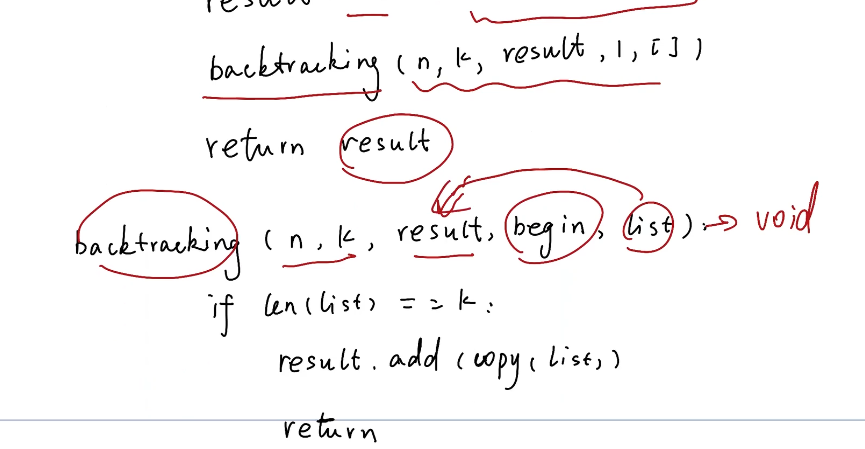 result
backtracking (n, k, result, 1, [])
return result
backtracking (n, k, result, begin, list): → void
if len(list) == k:
result.add (copy(list))
return